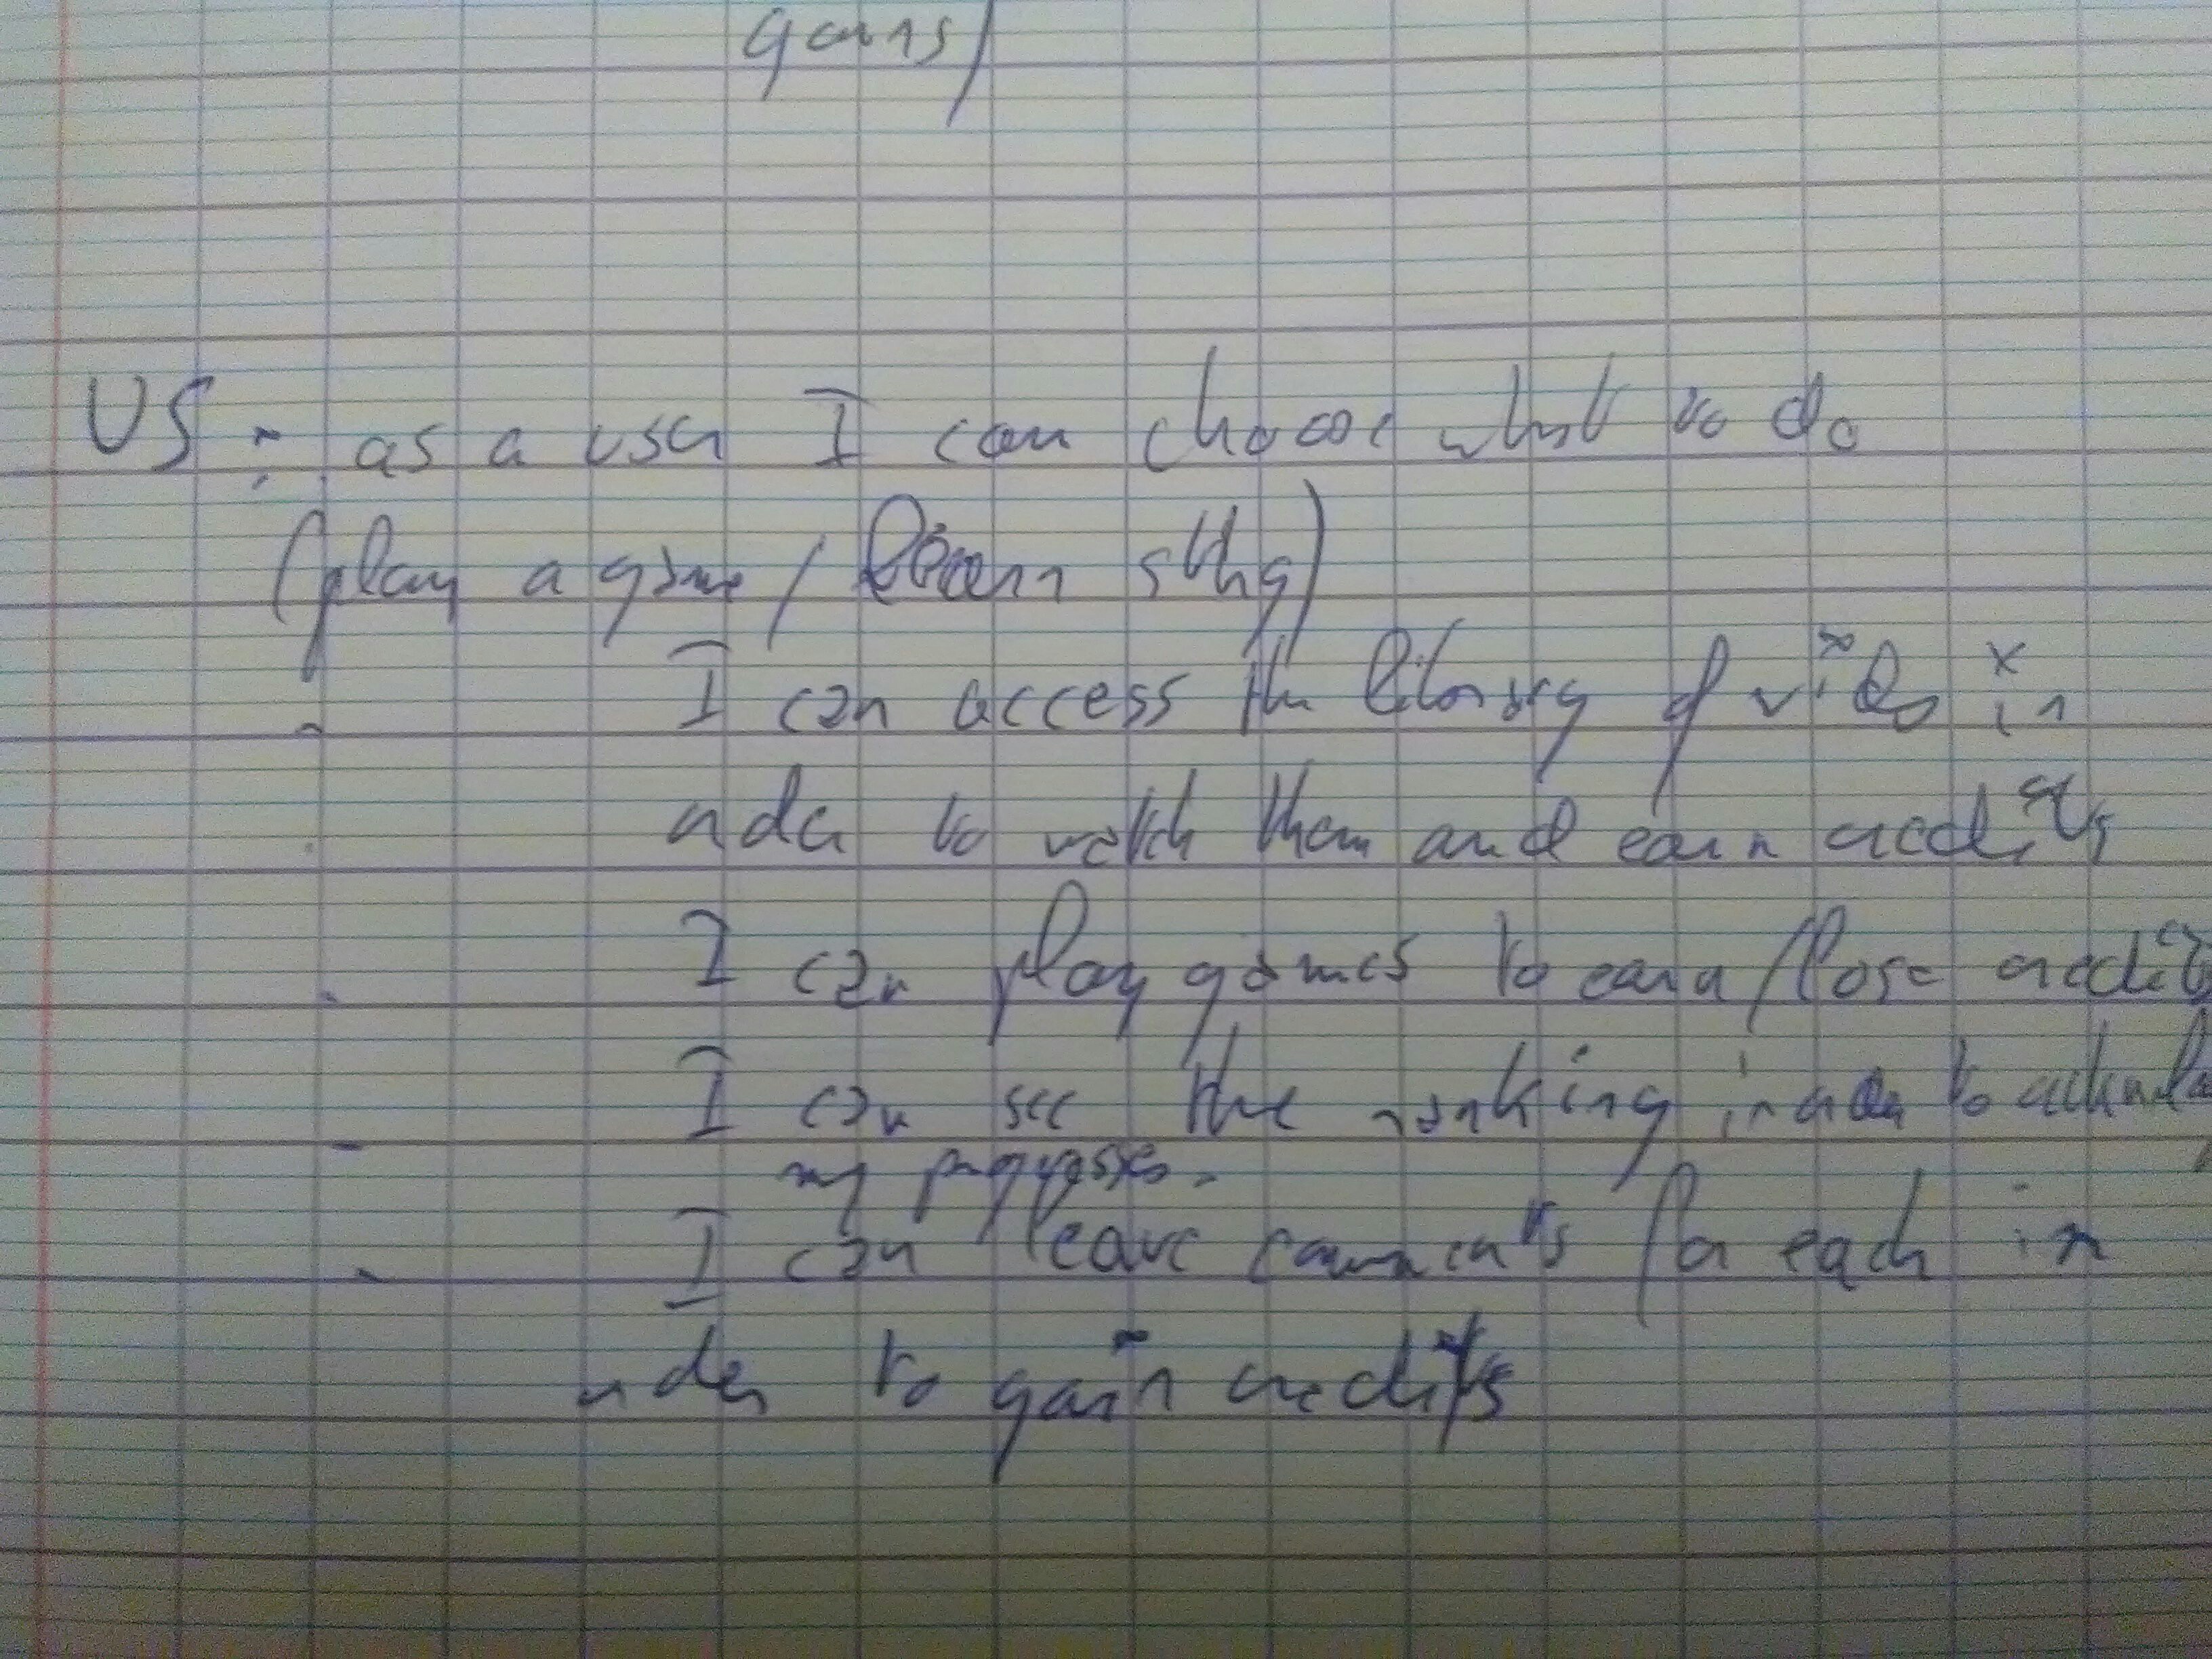 gains)
US : as a user I can choose what to do
(play a game / learn sthg)
- I can access the library of video in
order to watch them and earn credits
- I can play games to earn / lose credits
- I can see the ranking in order to
my progresses.
- I can leave comments for each in
order to gain credits